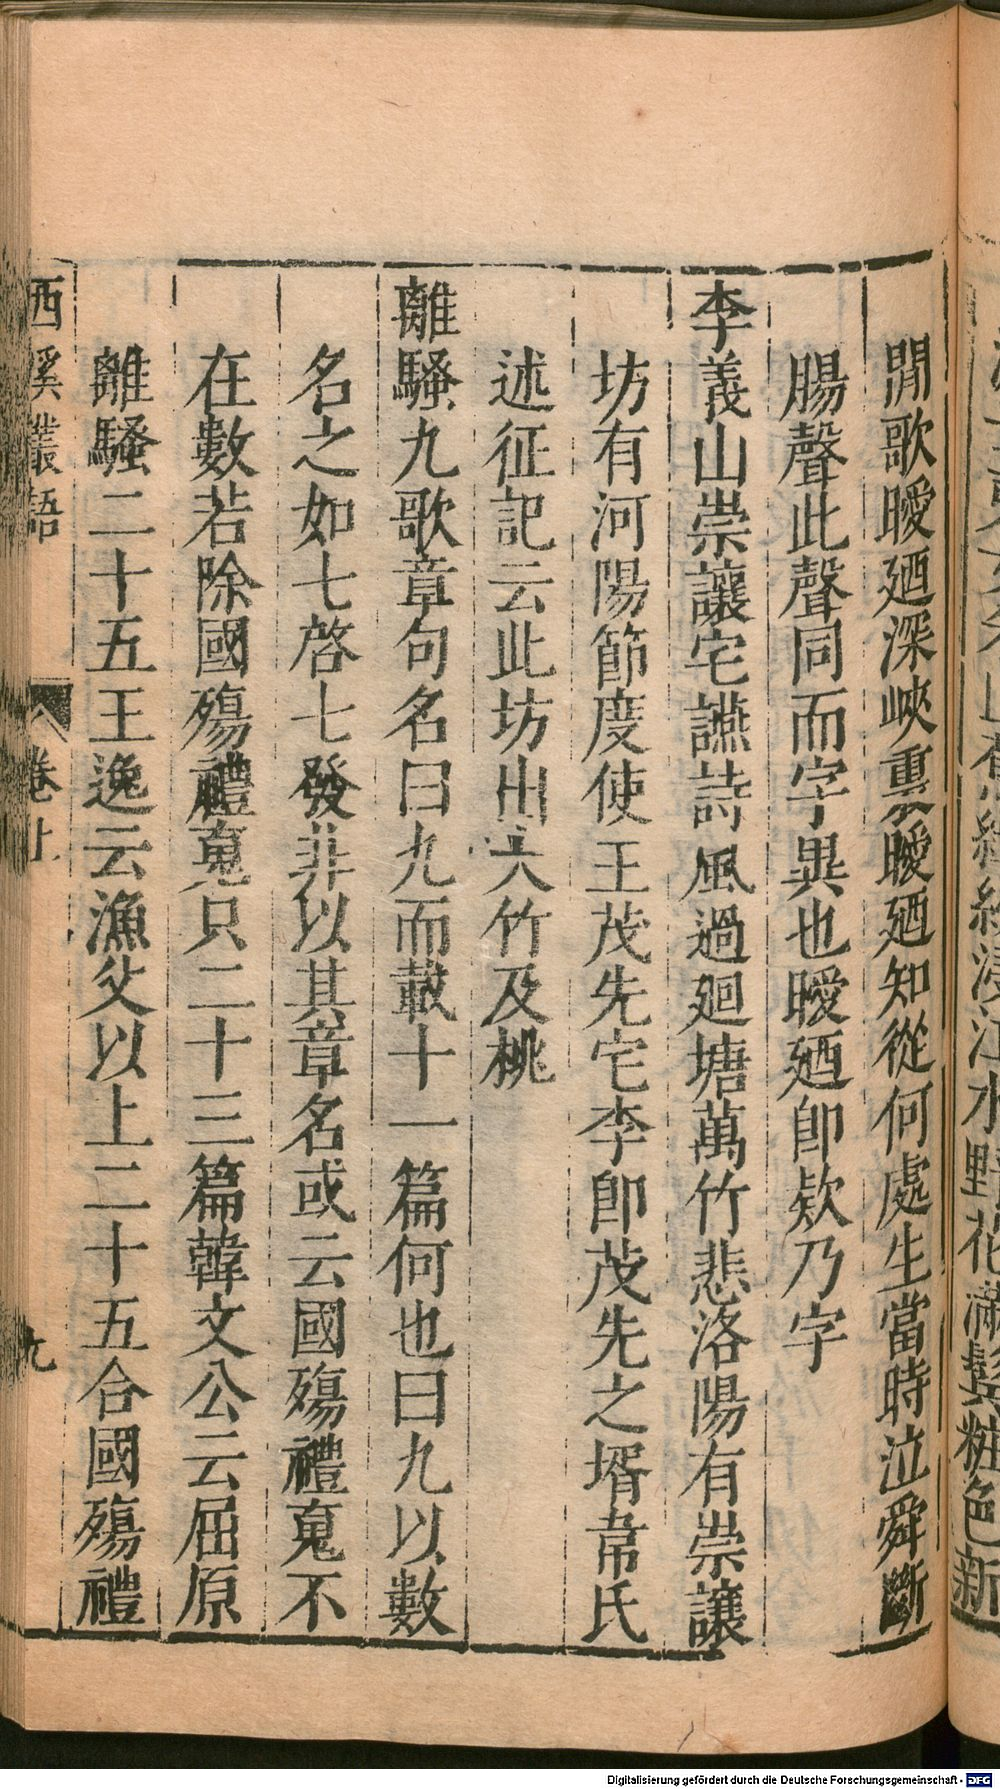 閒歌曖廼深峽裏曖廼知從何處生當時泣舜斷
腸聲此聲同而字異也曖廼卽欵乃字
李義山崇讓宅讌詩風過廻塘萬竹悲洛陽有崇讓
坊有河陽節度使王茂先宅李卽茂先之壻韋氏
述征記云此坊出大竹及桃
離騷九歌章句名曰九而載十一篇何也曰九以數
名之如七啓七發非以其章名或云國殤禮䰟不
在數若除國殤禮䰟只二十三篇韓文公云屈原
離騷二十五王逸云漁父以上二十五合國殤禮
西溪叢語 卷上 九
Digitalisierung gefördert durch die Deutsche Forschungsgemeinschaft - DFG